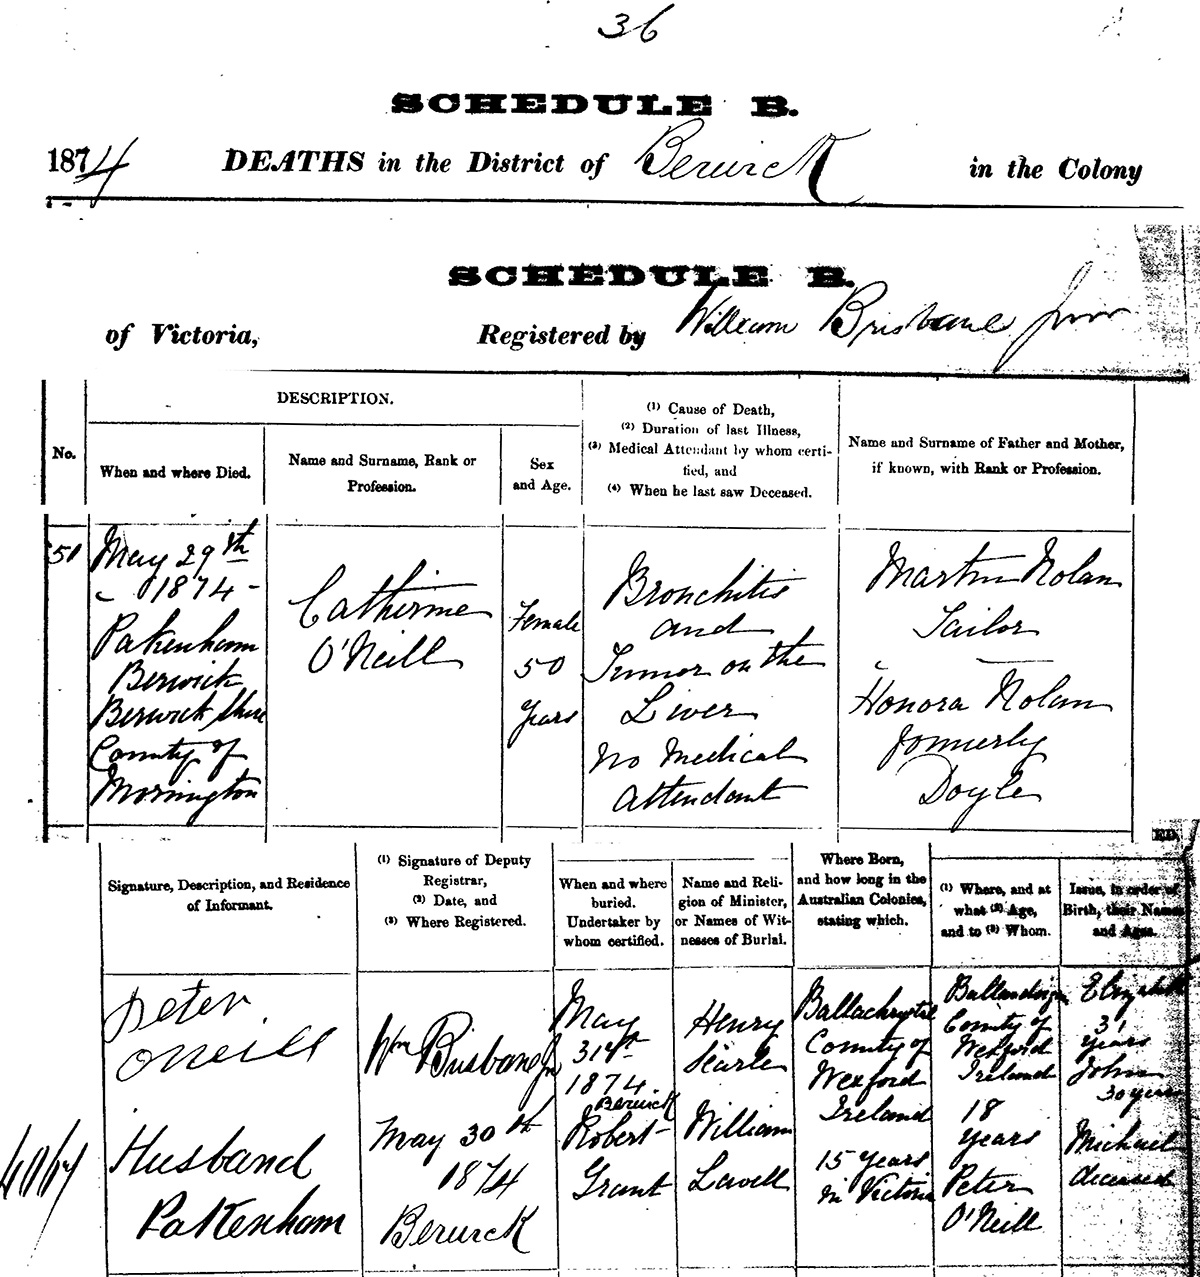 36
SCHEDULE B.
1874 DEATHS in the District of Berwick in the Colony
SCHEDULE B.
of Victoria, Registered by William Brisbane Junr
No.
DESCRIPTION.
When and where Died.
Name and Surname, Rank or
Profession.
Sex
and Age.
(1) Cause of Death,
(2) Duration of last Illness,
(3) Medical Attendant by whom certi-
fied, and
(4) When he last saw Deceased.
Name and Surname of Father and Mother,
if known, with Rank or Profession.
51
May 29th
1874
Pakenham
Berwick
Berwick Shire
County of
Mornington
Catherine
O'Neill
Female
50
Years
Bronchitis
and
Tumor on the
Liver
No Medical
Attendant
Martin Nolan
Tailor
Honora Nolan
formerly
Doyle
ED,
Signature, Description, and Residence
of Informant.
(1) Signature of Deputy
Registrar,
(2) Date, and
(3) Where Registered.
When and where
buried.
Undertaker by
whom certified.
Name and Reli-
gion of Minister,
or Names of Wit-
nesses of Burial.
Where Born,
and how long in the
Australian Colonies,
stating which.
(1) Where, and at
what (2) Age,
and to (3) Whom.
Issue, in order of
Birth, their Names
and Ages.
Peter
ONeill
Husband
Pakenham
Wm Brisbane Jn
May 30th
1874
Berwick
May
31st
1874
Berwick
Robert
Grant
Henry
Searle
William
Lavell
Ballachrystal
County of
Wexford
Ireland
15 years
in Victoria
County of
Wexford
Ireland
18
years
Peter
O'Neill
Elizabeth
31
years
John
30 years
Michael
deceased